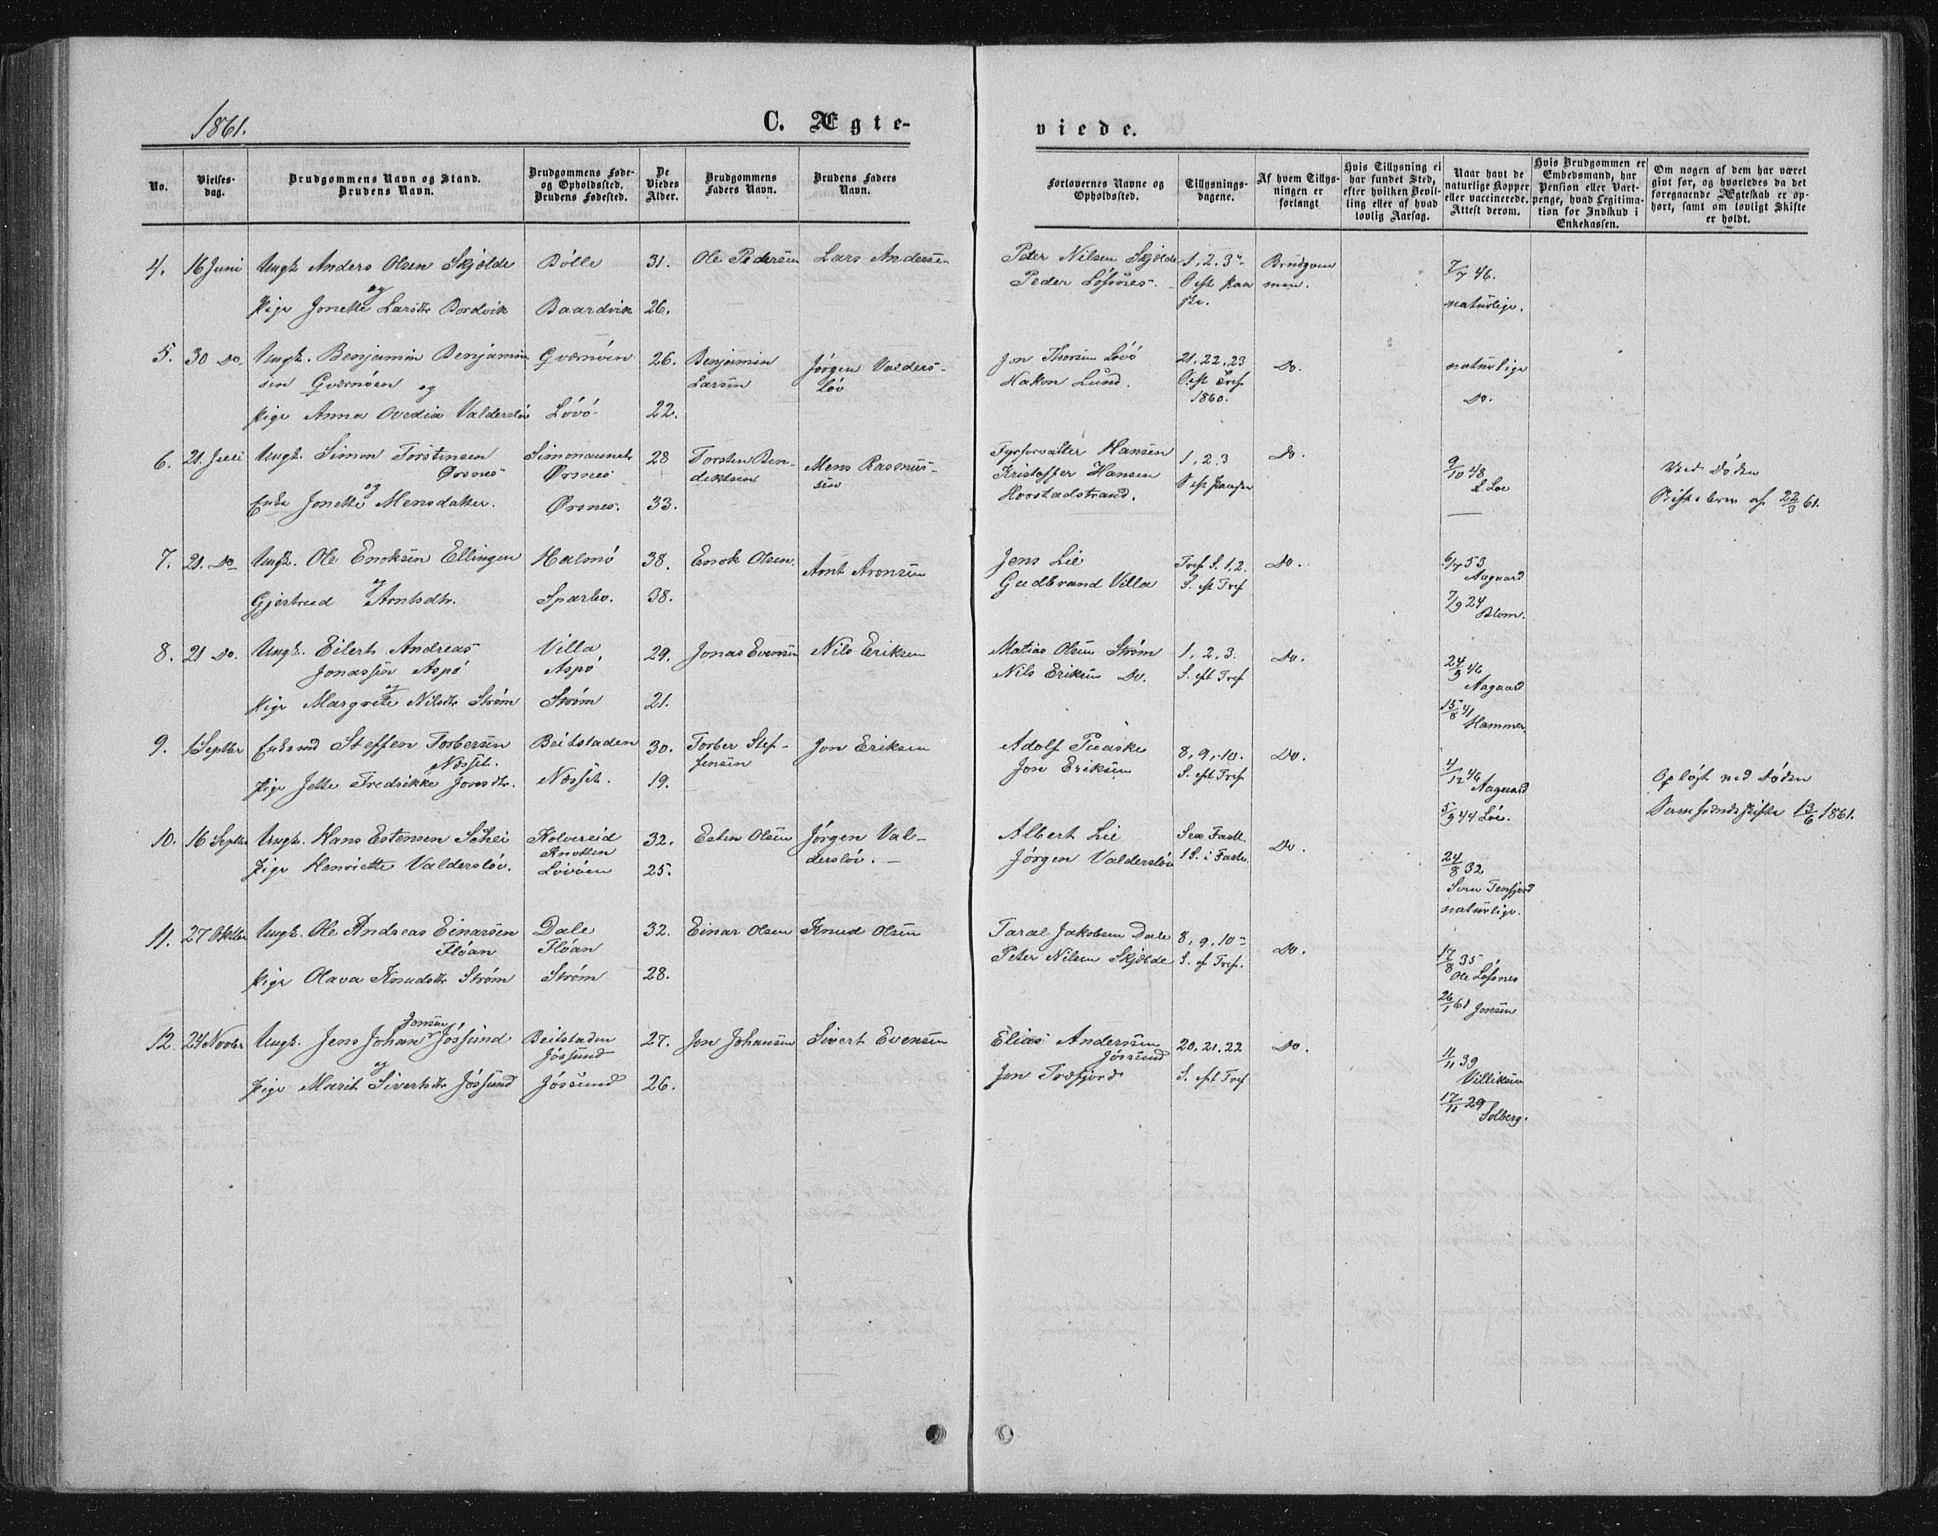 1861.
C. Ægte-
viede.
No.
Vielses-
dag.
Brudgommens Navn og Stand.
Brudens Navn.
Brudgommens Føde-
og Opholdssted.
Brudens Fødested.
De
Viedes
Alder.
Brudgommens
Faders Navn.
Brudens Faders
Navn.
Forlovernes Navne og
Opholdssted.
Tillysnings-
dagene.
Af hvem Tillys-
ningen er
forlangt
Hvis Tillysning ei
har fundet Sted,
efter hvilken Bevil-
ling eller af hvad
lovlig Aarsag.
Naar havt de
naturlige Kopper
eller vaccinerede.
Attest derom.
Hvis Brudgommen er
Embedsmand, har
Pension eller Vart-
penge, hvad Legitima-
tion for Indskud i
Enkekassen.
Om nogen af dem har været
gift før, og hvorledes da det
foregaaende Ægteskab er op-
hørt, samt om lovligt Skifte
er holdt.
4. 16 Juni Ungk. Anders Olsen Skjølde Bølle 31. Ole Pedersen Lars Andersen Peter Nilsen Skjølde 1. 2. 3 Brudgom 7/7 46.
og Peder Løfsnes. men.
Pige Jonette Larsdtr Bordvik Baardvik 26. naturlige.
5. 30 Do. Ungk. Benjamin Benjamin Gværnøen 26. Benjamin Jørgen Valders- Jon Thorsen Løvö 21. 22. 23 Do. naturlige
sen Gværnøen og Larsen løv Hakon Lund. S. eft Tref 1860. Do.
Pige Anna Ovedia Valdersløv Løvö. 22.
6. 21. Juli Ungk. Simon Torstensen Simonaunet 28 Torsten Ben- Mens Rasmus- Fyrforvalter Hansen 1. 2. 3 Do. 9/10 48
Ørsnes Ørsnes dektsen sen Kristoffer Hansen L. Loe Ved Døden
og
Enke Jonette Mensdatter. Ørsnes. 33. Hoostadstrand. af 22/3 61.
7. 21. Do Ungk. Ole Enoksen Ellingen Halmø 38. Enok Olsen. Arnt Aronsen Jens Lie Tref S. 1. 2. Do. 6/7 53
og Gudbrand Villa S. eft Tref Aagaard
Gjertrud Arntsdtr. Sparbo. 38. 7/9 24
Blom.
8. 21 Do. Ungk. Eilert Andreas Villa 29. Jonas Evensen Nils Eriksen Matias Olsen Strøm 1. 2. 3. Do. 24/9 46
Jonassen Aspö Aspö Nils Eriksen Do. S. eft Tref Aagaard
og
Pige Margrete Nilsdtr Strøm Strøm 21. 15/8 41
Hammer
9. 1 Septber Enkemd Steffen Torbersen Beitstaden 30. Torber Stef- Jon Eriksen Adolf Paaske 8. 9. 10. Do. 4/12 46
Næsset. fensen Jon Eriksen S. eft Tref Aagaard Opløst ved Døden
Pige Jette Fredrikke Jonsdtr. Næsset. 19. 5/9 44 Löe. 13/6 1861.
10. 16 Septbr Ungk. Hans Estensen Schei Kolvereid 32. Esten Olsen Jørgen Val- Albert Lie Sex Fastl. Do. 24/8 32
Knotten dersløv. Jørgen Valdersløv 1 S. i Faste.
Pige Henriette Valdersløv. Løvöen 25. naturlige.
11. 27 Oktber Ungk. Ole Andreas Einarsen Dale 32. Einar Olsen Knud Olsen Taral Jakobsen Dale 8, 9, 10 Do. 17/8 35
Fløan Fløan Peter Nilsen Skjølde S. eft Tref. Ole Løfsnes
Pige Olava Knudsdtr Strøm Strøm 28. 26/1 61 Jonsen
12. 24 Novbr Ungk. Jens Johan Jonsen Jøssund Beitstaden 27. Jon Johansen Sivert Evensen Elias Anderssen 20. 21. 22 Do. 4/11 39
og Jøssund Jøssund Villiksen
Pige Marit Sivertsdtr Jøssund Jøssund 26. Jon Træfjord S. eft Tref 17/11 29
Solberg.